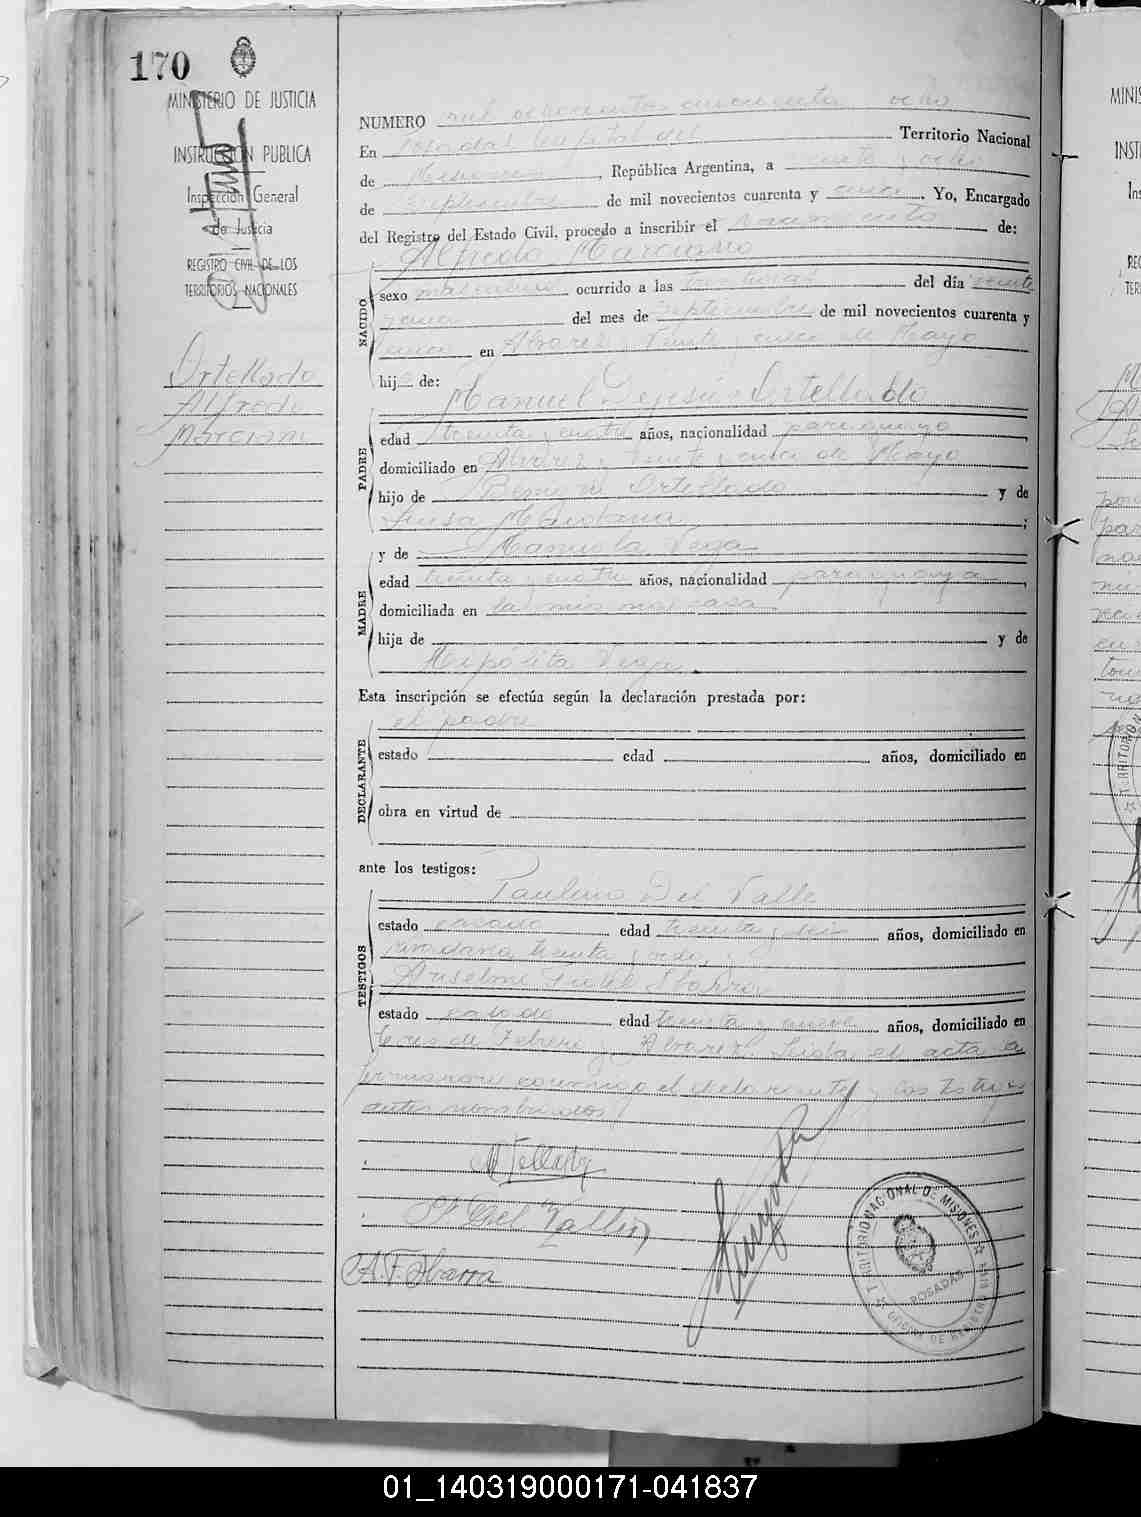 170
MINISTERIO DE JUSTICIA
INSTRUCCIÓN PUBLICA
Inspección General
de Justicia
REGISTRO CIVIL DE LOS
TERRITORIOS NACIONALES
Ortellado
Alfredo
Marciano
NUMERO mil ochocientos cincuenta ocho
En Posadas Capital del Territorio Nacional
de Misiones, República Argentina, a veinte y ocho
de Septiembre de mil novecientos cuarenta y cinco. Yo, Encargado
del Registro del Estado Civil, procedo a inscribir el nacimiento de:
Alfredo Marciano
NACIDO
sexo masculino ocurrido a las tres horas del día veinte
del mes de Septiembre de mil novecientos cuarenta y
cinco en Alvarez y Veinte y cinco de Mayo
hijo de:
Manuel Dejesús Ortellado
PADRE
edad treinta y cuatro años, nacionalidad paraguayo,
domiciliado en Alvarez y Veinte y cinco de Mayo
hijo de Benigno Ortellado y de
Luisa Maidana;
y de Manuela Vega
MADRE
edad treinta y cuatro años, nacionalidad paraguaya,
domiciliada en la misma casa
hija de y de
Hipólita Vega.
Esta inscripción se efectúa según la declaración prestada por:
el padre
DECLARANTE
estado edad años, domiciliado en
obra en virtud de
ante los testigos:
Paulino Del Valle
TESTIGOS
estado casado edad treinta y seis años, domiciliado en
rivadavia treinta y ocho,
Anselmo Fidel Ibarra
estado casado edad treinta y nueve años, domiciliado en
tres de Febrero y Alvarez. Leida el acta la
firmaron conmigo el declarante y los testigos
antes nombrados
P. Del Valle
A. F. Ibarra
TERRITORIO NACIONAL DE MISIONES
POSADAS
OFICINA DE REGISTRO CIVIL
01_140319000171-041837